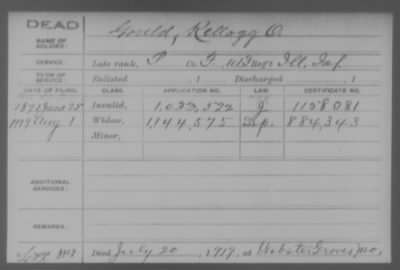 DEAD
NAME OF SOLDIER: Gould, Kellogg O.
SERVICE: Late rank, P Co G, 113 Regt Ill. Inf
TERM OF SERVICE: Enlisted , 1 Discharged , 1
DATE OF FILING. CLASS. APPLICATION NO. LAW. CERTIFICATE NO.
1891 June 25 Invalid, 1,033,522 J 1158081
1919 Aug 1 Widow, 1,144,575 884,343
Minor,
ADDITIONAL SERVICES:
REMARKS:
Died July 20, 1919, at Webster Groves, Mo.,